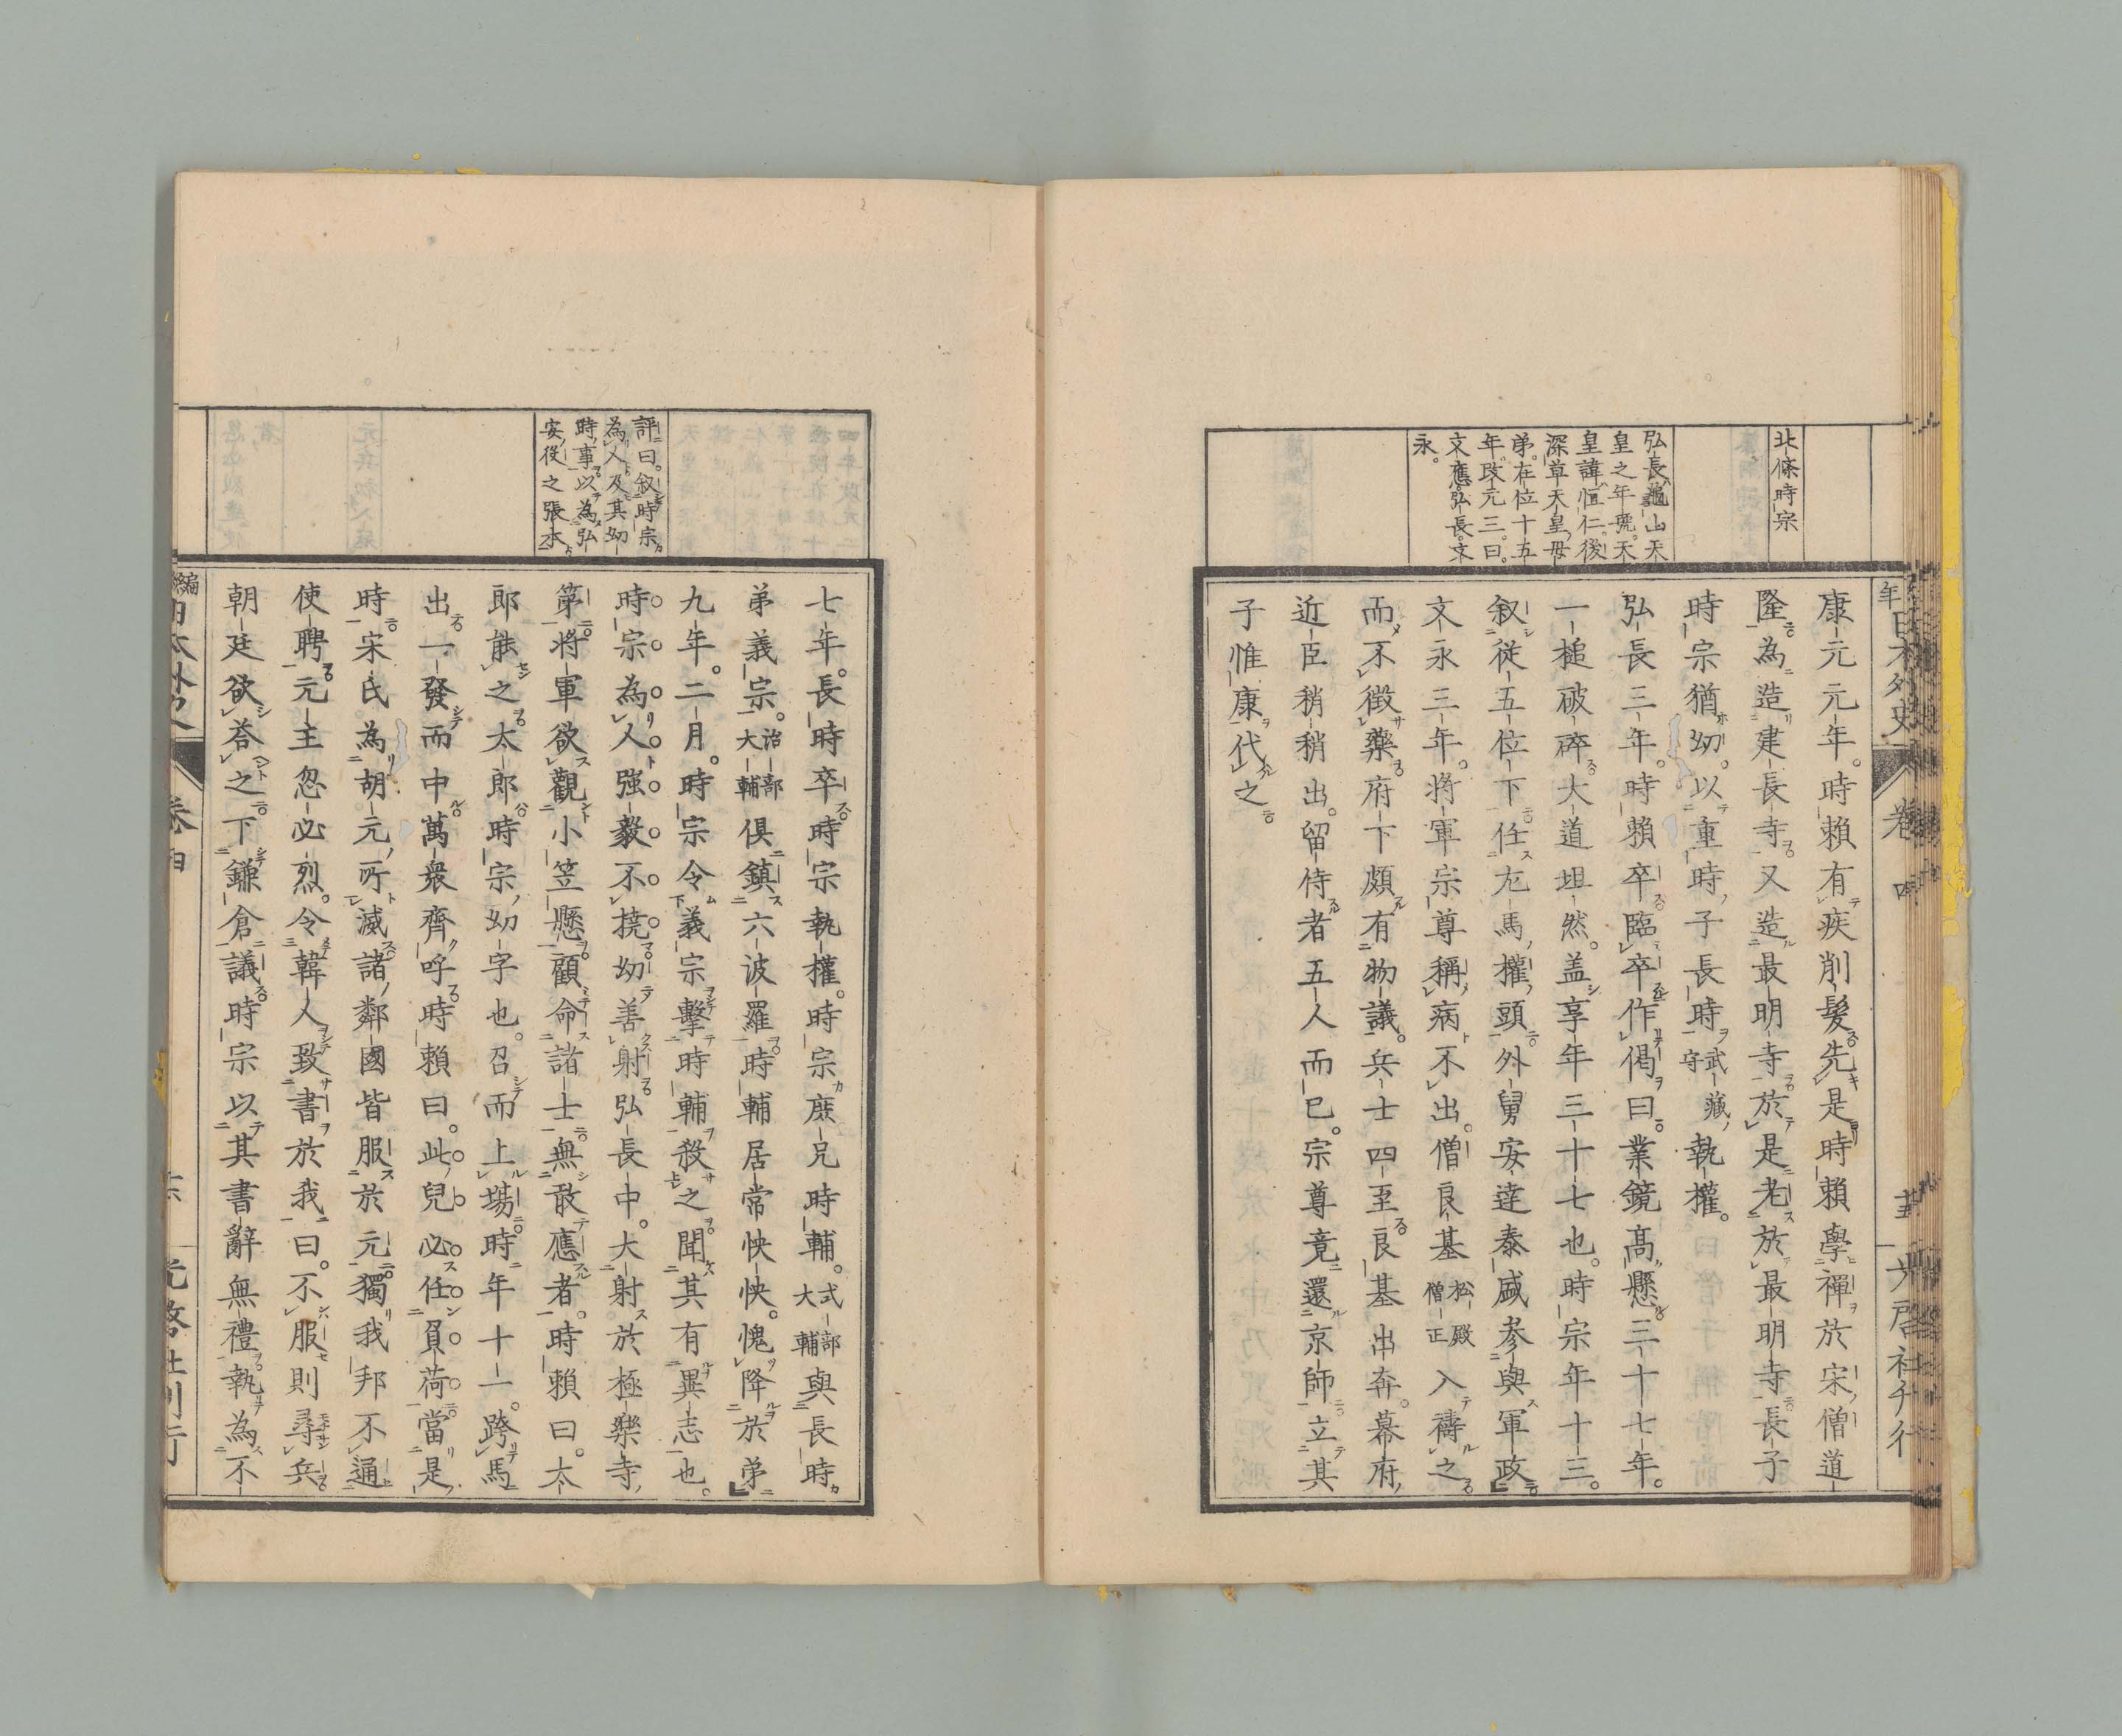 北條時宗
弘長龜山天
皇之年號天
皇諱恒仁後
深草天皇母
弟在位十五
年改元三曰
文應弘長文
永。
年日本外史
卷四
光啓社刊行
康元元年。時賴有疾削髮先是時賴學禪於宋僧道
隆為造建長寺又造最明寺於是老於最明寺長子
時宗猶幼。以重時子長時武藏守執權。
弘長三年。時賴卒臨卒作偈曰。業鏡高懸三十七年。
一槌破碎大道坦然。盖享年三十七也。時宗年十三。
叙從五位下任左馬權頭外舅安達泰盛參與軍政
文永三年。將軍宗尊稱病不出。僧良基松殿僧正入禱之
而不徵藥府下頗有物議。兵士四至良基出奔。幕府
近臣稍稍出。留侍者五人而已。宗尊竟還京師立其
子惟康代之
評曰。叙時宗
為人及其幼
時事以為弘
安役之張本
七年。長時卒時宗執權。時宗庶兄時輔。式部大輔與長時
弟義宗。治部大輔俱鎮六波羅時輔居常怏怏。愧降於弟
九年。二月。時宗令義宗擊時輔殺之聞其有異志也。
時宗為人強毅不撓幼善射弘長中。大射於極樂寺
第將軍欲觀小笠懸顧命諸士無敢應者。時賴曰。太
郎能之太郎時宗幼字也。召而上塲時年十一。跨馬
出一發而中萬衆齊呼時賴曰。此兒必任負荷當是
時宋氏為胡元所滅諸鄰國皆服於元獨我邦不通
使聘元主忽必烈。令韓人致書於我曰。不服則尋兵
朝廷欲荅之下鎌倉議時宗以其書辭無禮執為不